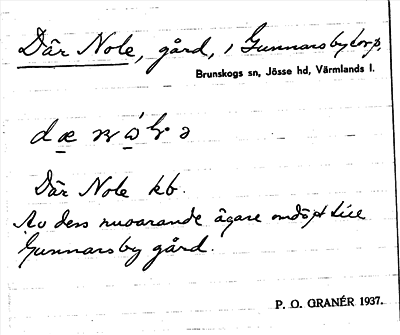 Där Nole, gård, i Gunnarsbytorp.
Brunskogs sn, Jösse hd, Värmlands l.
Där Nole kb.
Av dess nuvarande ägare omdöpt till
Gunnarsby gård.
P. O. GRANÉR 1937.